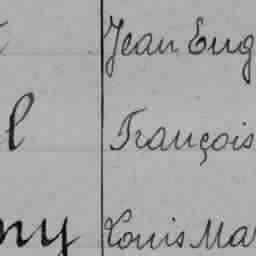 Jean Eug
l François
ny Louis Ma